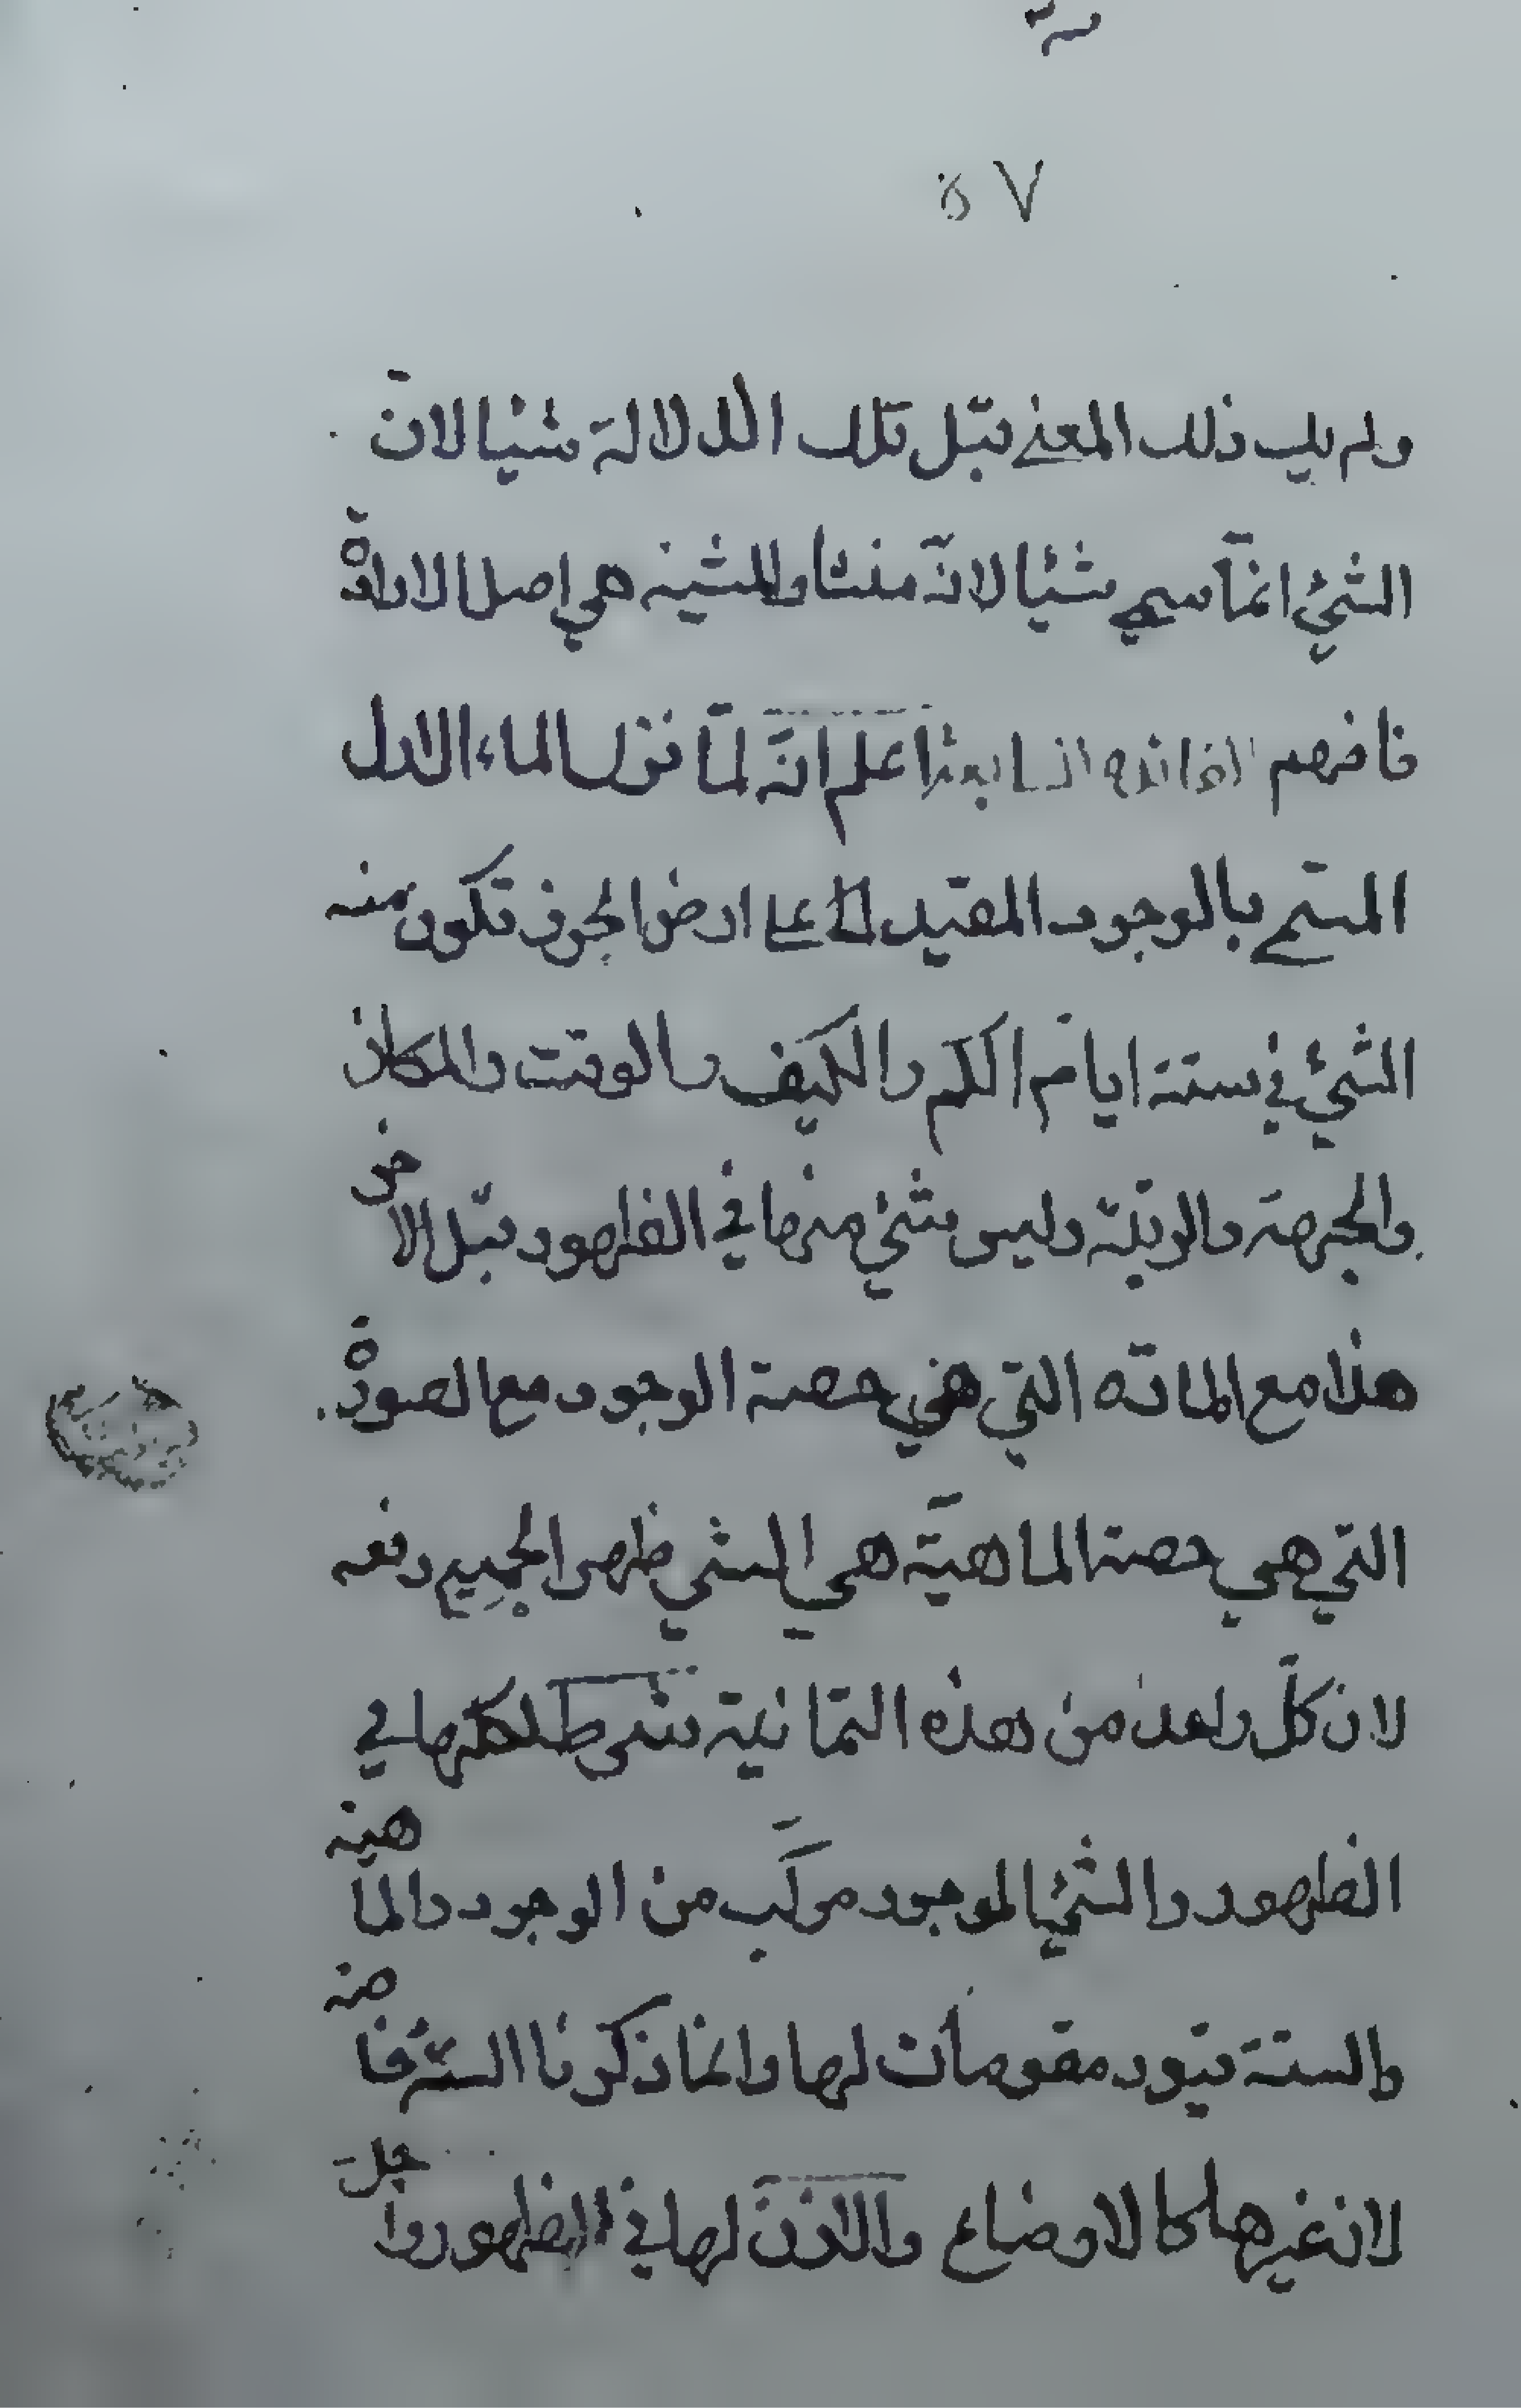 ٥٧
ولم يك ذلك المعنى قبل تلك الدلالة شيئا لانّ
الشيئ انمّا سمي شيئا لانّه منشا والمشيه هي اصل الارادة
فافهم الفائدة السابعة اعلم انّه لمّا نزل الماء الاول
المسّمى بالوجود المقيّد الى على ارض الجرز تكون منه
الشيئ في ستة ايام الكم والكيف والوقت والمكان
والجهة والرتبّة وليس شئي منها في الظهور قبل الاخر
هذا مع المادّه التي هي حصة الوجود مع الصورة
التي هي حصة الماهيّة هي الشي ظهر الجميع دفعه
لان كلّ واحد من هذه الثمّانية شرط لكلها في
الظهور والشيئ الموجود مركّب من الوجود والماهية
والستة قيود مقومات لها وانما ذكرنا الستّة خاصة
لان غيرها كالاوضاع والاذن لها في الظهور واجل